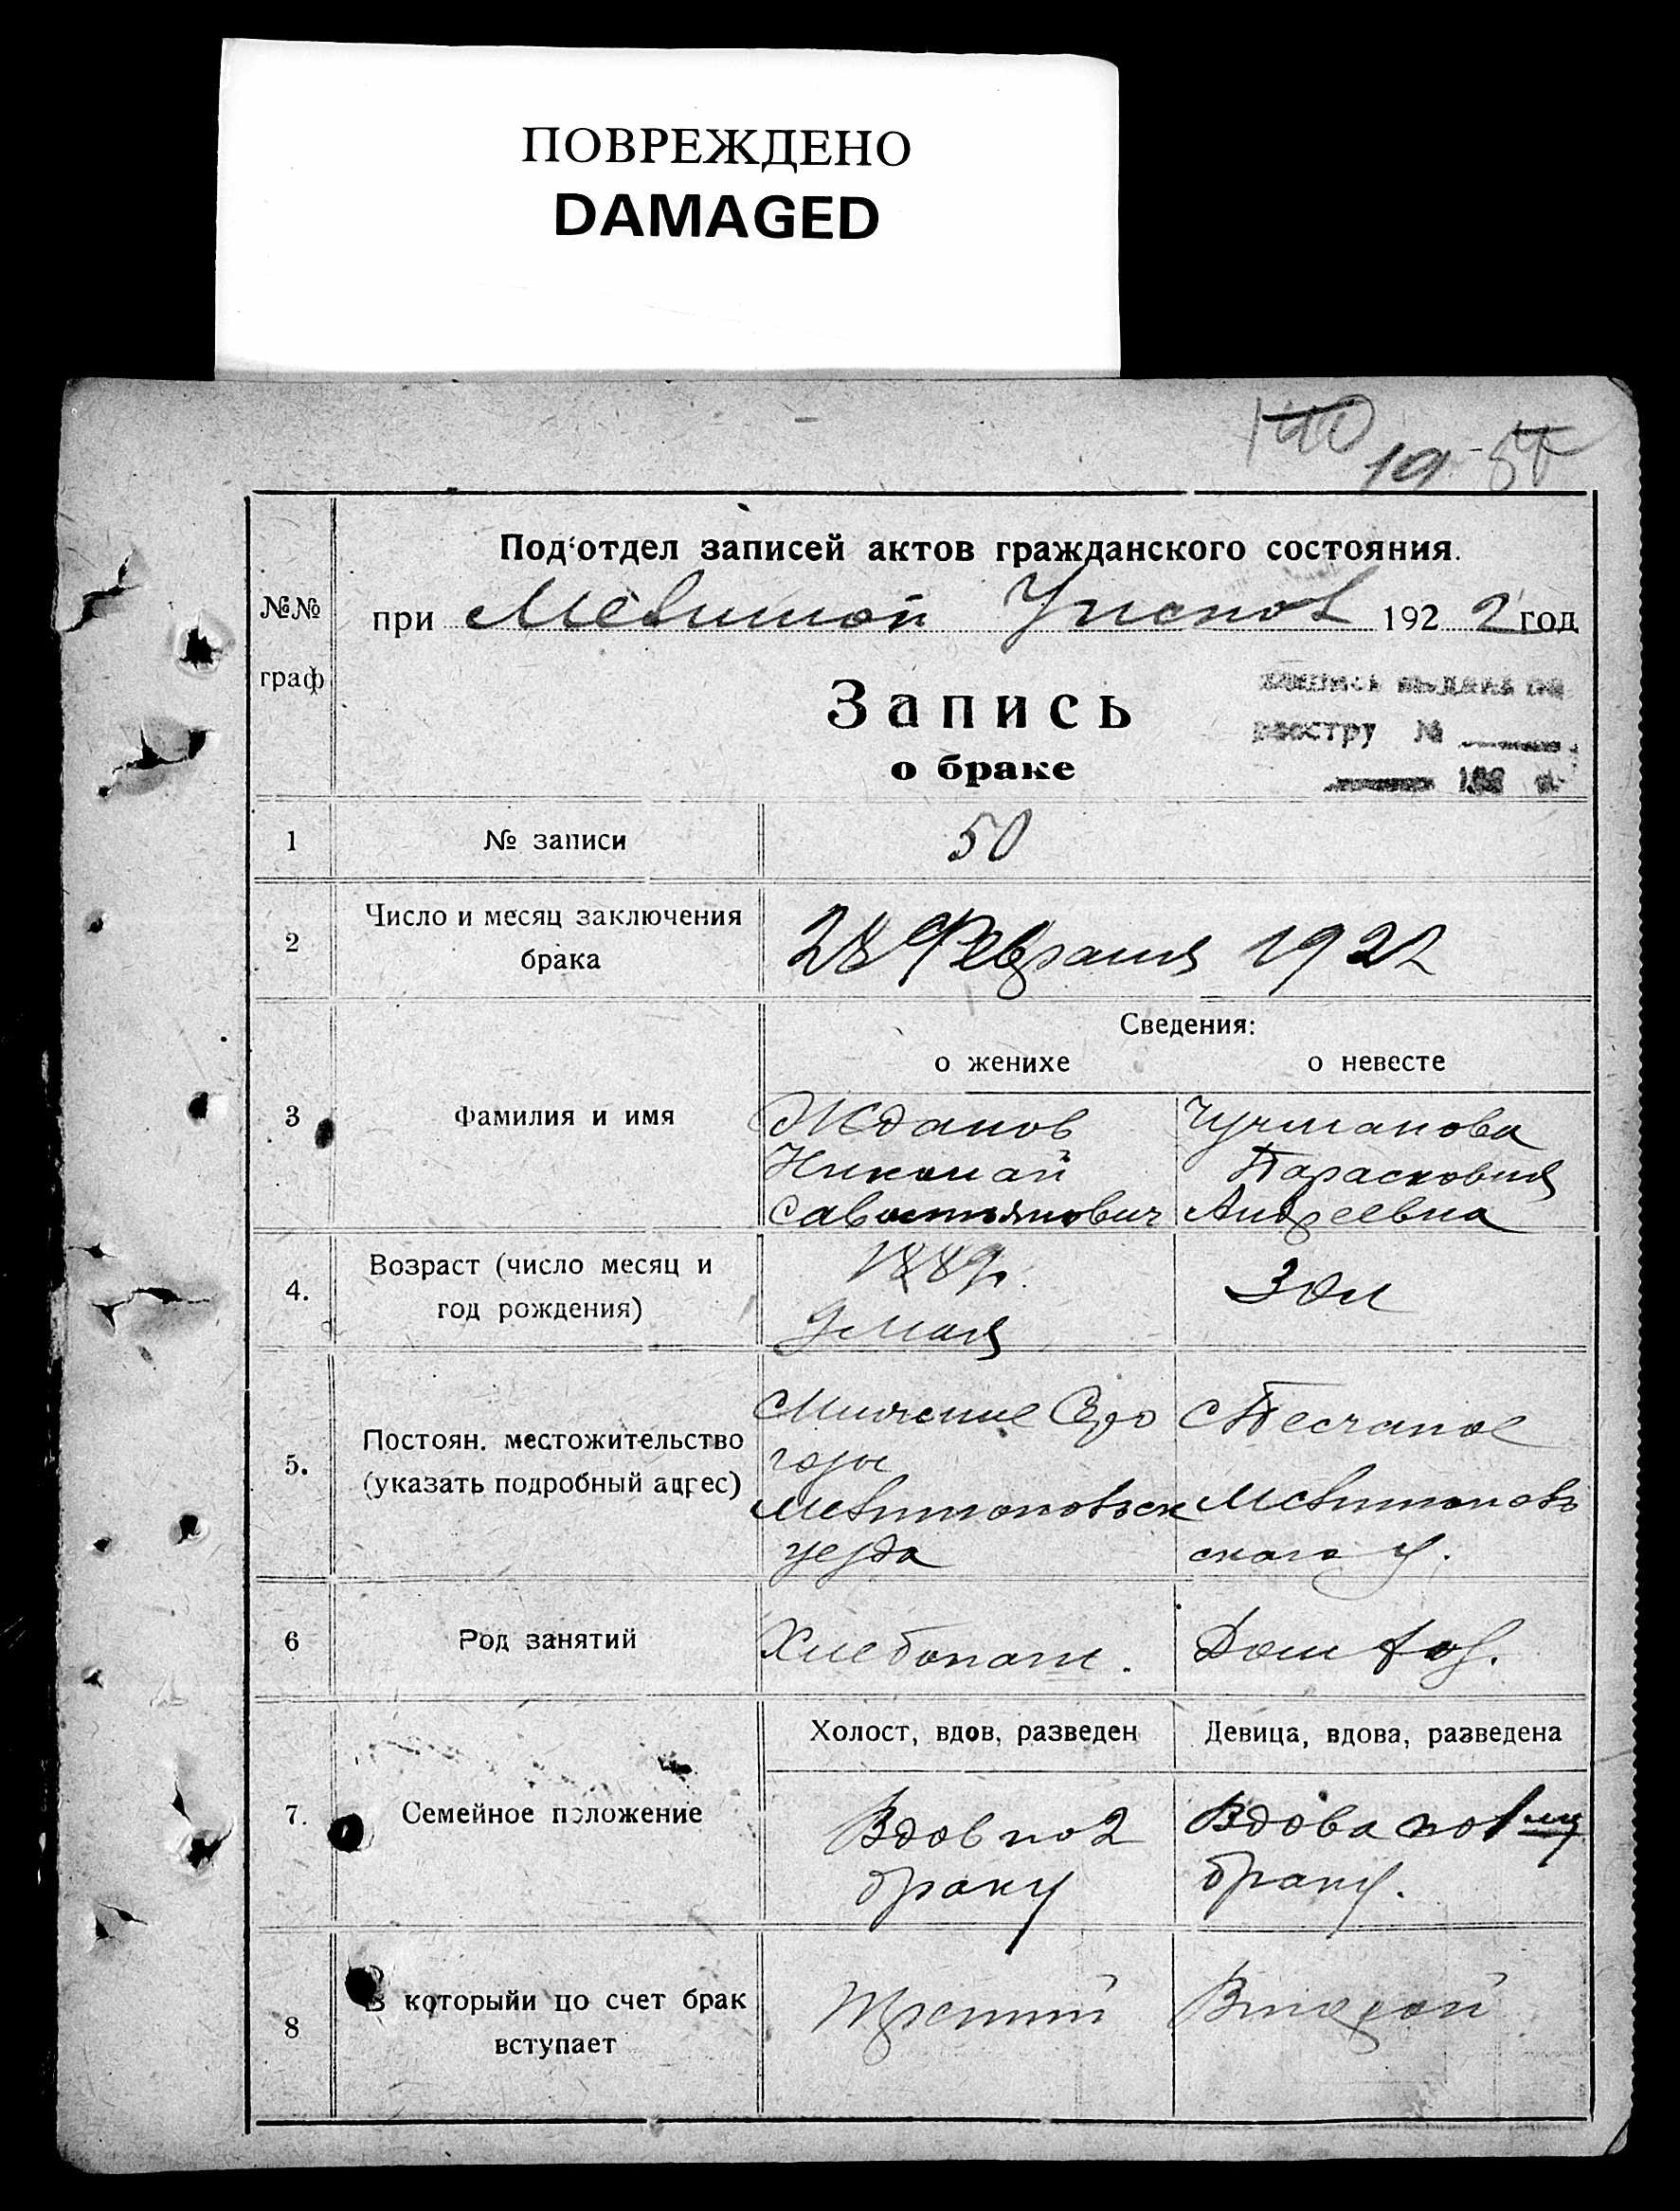 ПОВРЕЖДЕНО
DAMAGED
140
19 54
Под'отдел записей актов гражданского состояния.
№№
граф
при Мелитоп Уиспов 1922 год
Запись
о браке
реестру №
192
1
№ записи
50
2
Число и месяц заключения
брака
28 Февраля 1922
Сведения:
о женихе
о невесте
3
Фамилия и имя
Жданов
Николай
Савостьянович
Чучманова
Парасковия
Андреевна
4.
Возраст (число месяц и
год рождения)
1889 г.
9 Мая
30 л
5.
Постоян. местожительство
(указать подробный адрес)
С Нижние Серо
гозы
Мелитоповск
уезда
С Песчаное
Мелитопов
ского у.
6
Род занятий
Хлебопаш.
Дом хоз.
7.
Семейное положение
Холост, вдов, разведен
Девица, вдова, разведена
Вдов по 2
браку
Вдова по 1 му
браку.
8
В которыйи по счет брак
вступает
Третий
Второй